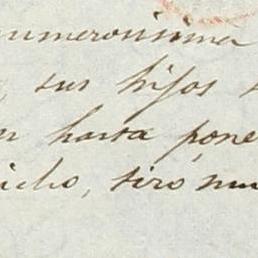 numerosisima
, sus hijos
n hasta pone
icho, tiró mu